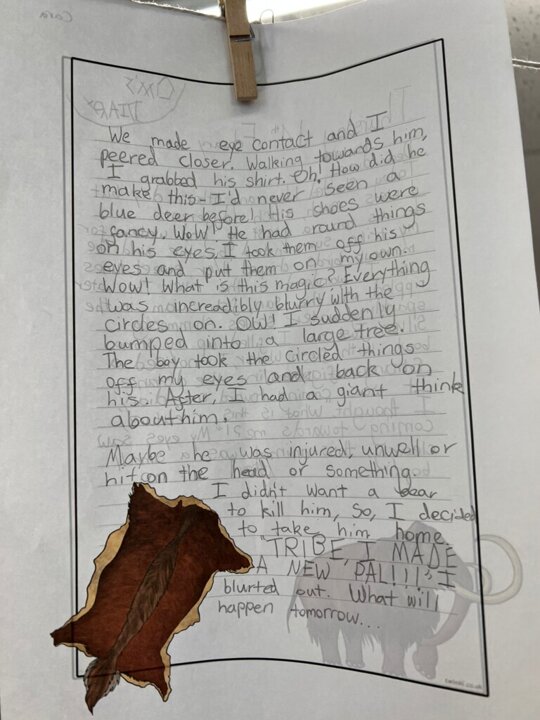 We made eye contact and I
peered closer. Walking towards him,
I grabbed his shirt. Oh! How did he
make this - I'd never seen a
blue deer before! His shoes were
fancy. WoW! He had around things
on his eyes. I took them off his
eyes and put them on my own.
Wow! What is this magic? Everything
was increadibly blurry with the
circles on. OW! I suddenly
bumped into a large tree.
The boy took the circled things
off my eyes and back on
his. After, I had a giant think
about him.
Maybe he was injured, unwell or
hit on the head or something.
I didn't want a bear
to kill him, so, I decided
to take him home.
"TRIBE I MADE
A NEW PAL!!!" I
blurted out. What will
happen tomorrow...
twinkl.co.uk